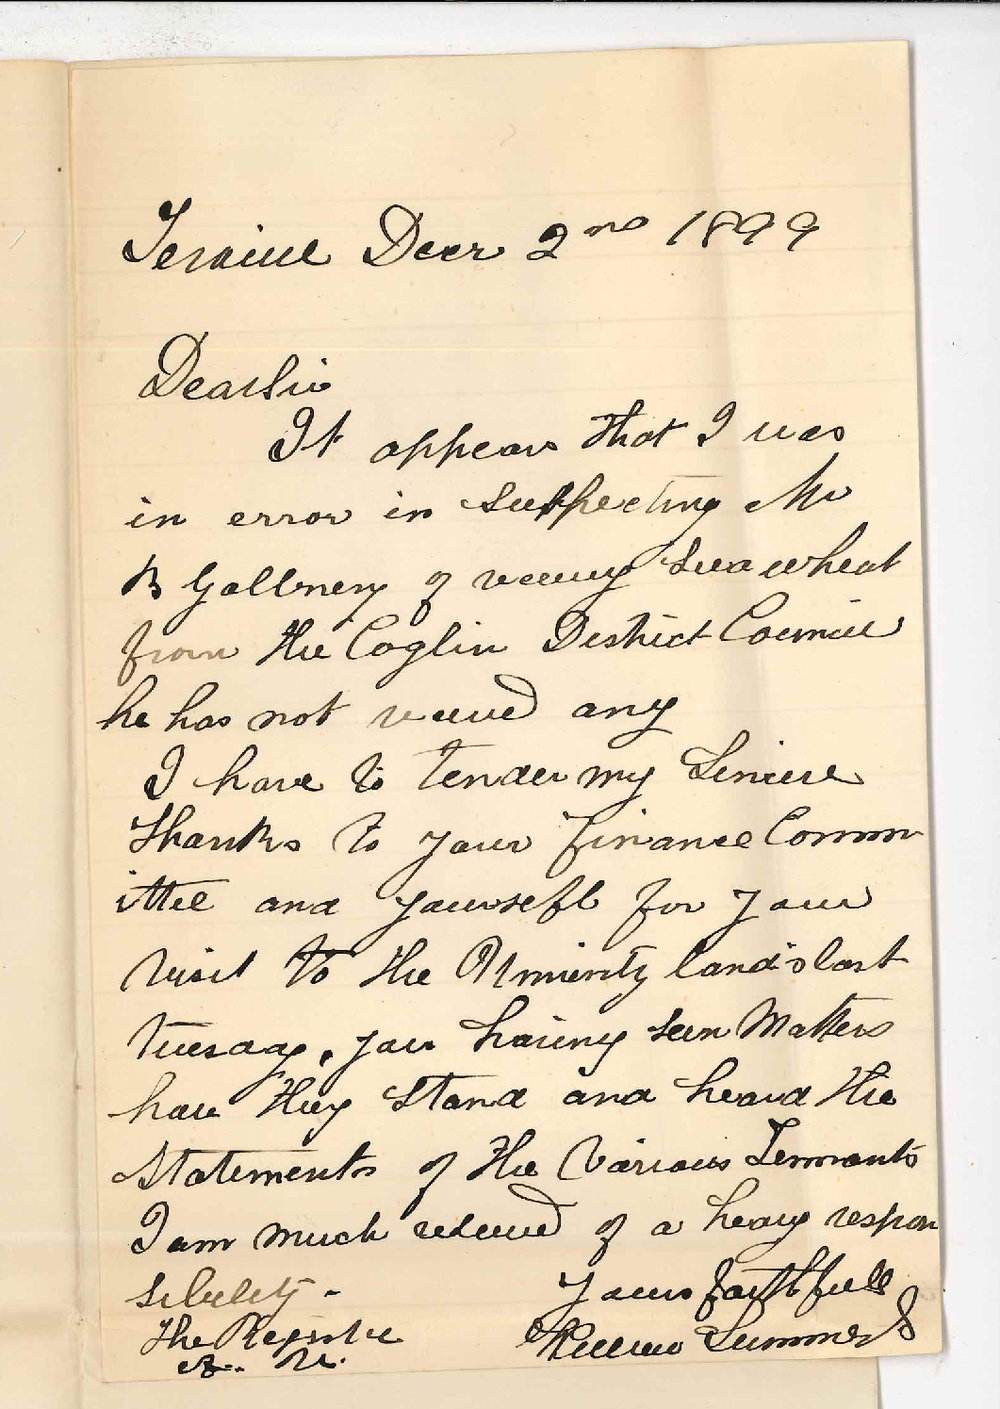 Terowie Decr 2nd 1899
Dear Sir
It appears that I was
in error in suspecting Mr
B Gallnery of receiving Seed wheat
from the Coglin District Council
he has not received any
I have to tender my Sincere
thanks to your Finance Comm
ittee and yourself for your
visit to the University lands last
Tuesday, you having seen Matters
how they stand and heard the
Statements of the various Tennants
I am much releived of a heavy respon
sibility -
Yours faithfull
The Registrar
William Summers